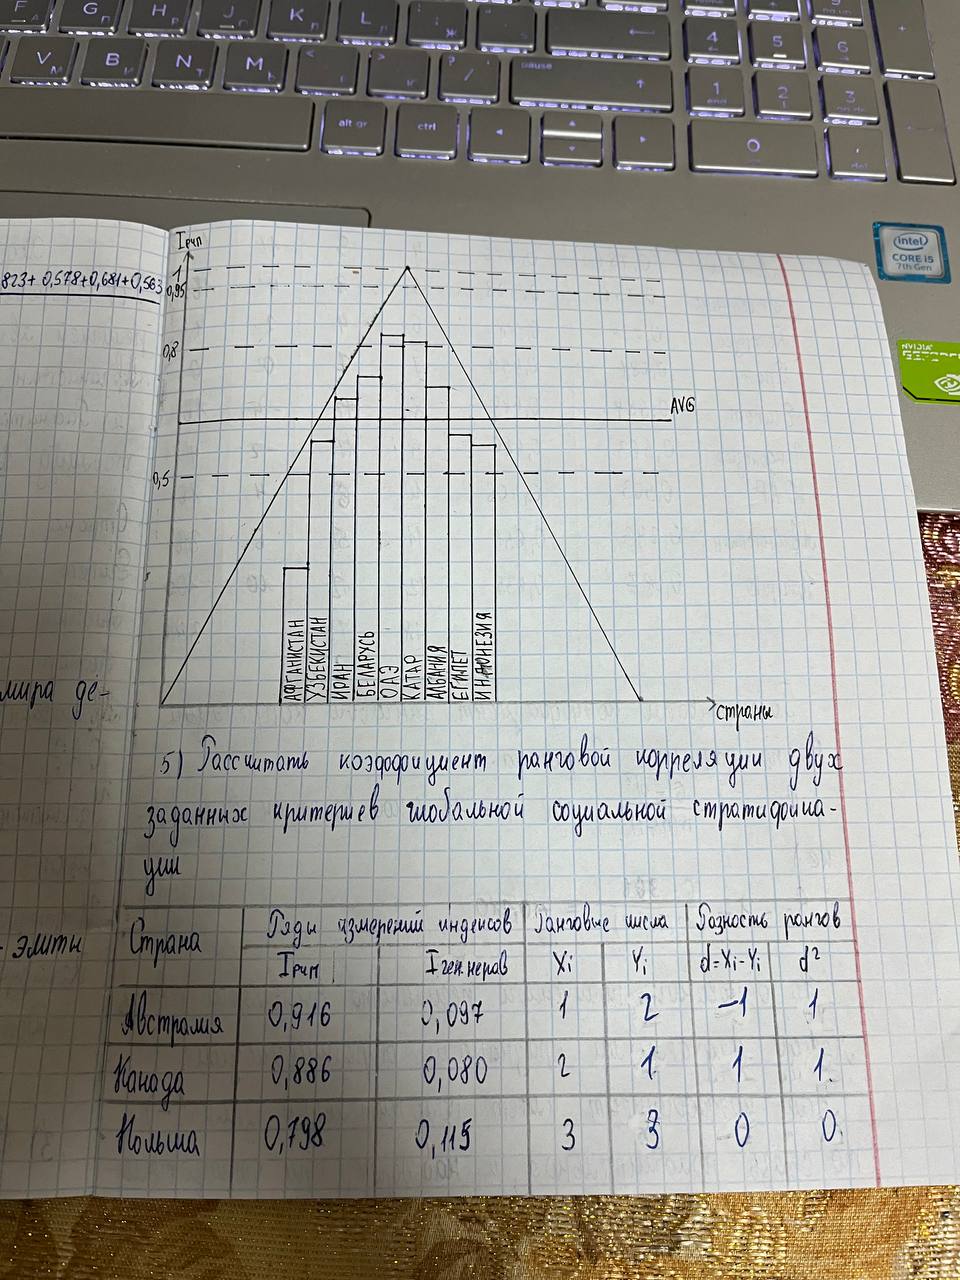 F G H J K L
П Р О Л Д Ж
V B N M
М И Т Ь
pause
4 5 6
1 2 3
end
0
del
alt gr ctrl
intel
CORE i5
7th Gen
NVIDIA
GEFORCE
823+ 0,578+0,681+0,563
Iрчп
1
0,95
0,8
AVG
0,5
АФГАНИСТАН
УЗБЕКИСТАН
ИРАН
БЕЛАРУСЬ
ОАЭ
КАТАР
АЛБАНИЯ
ЕГИПЕТ
ИНДОНЕЗИЯ
страны
мира де-
5) Рассчитать коэффициент ранговой корреляции двух
заданных критериев глобальной социальной стратифика-
ции
элиты
Страна Ряды измерений индексов Ранговые числа Разность рангов
Iрчп Iген.нерав Xi Yi d=Xi-Yi d²
Австралия 0,916 0,097 1 2 -1 1
Канада 0,886 0,080 2 1 1 1
Польша 0,798 0,115 3 3 0 0